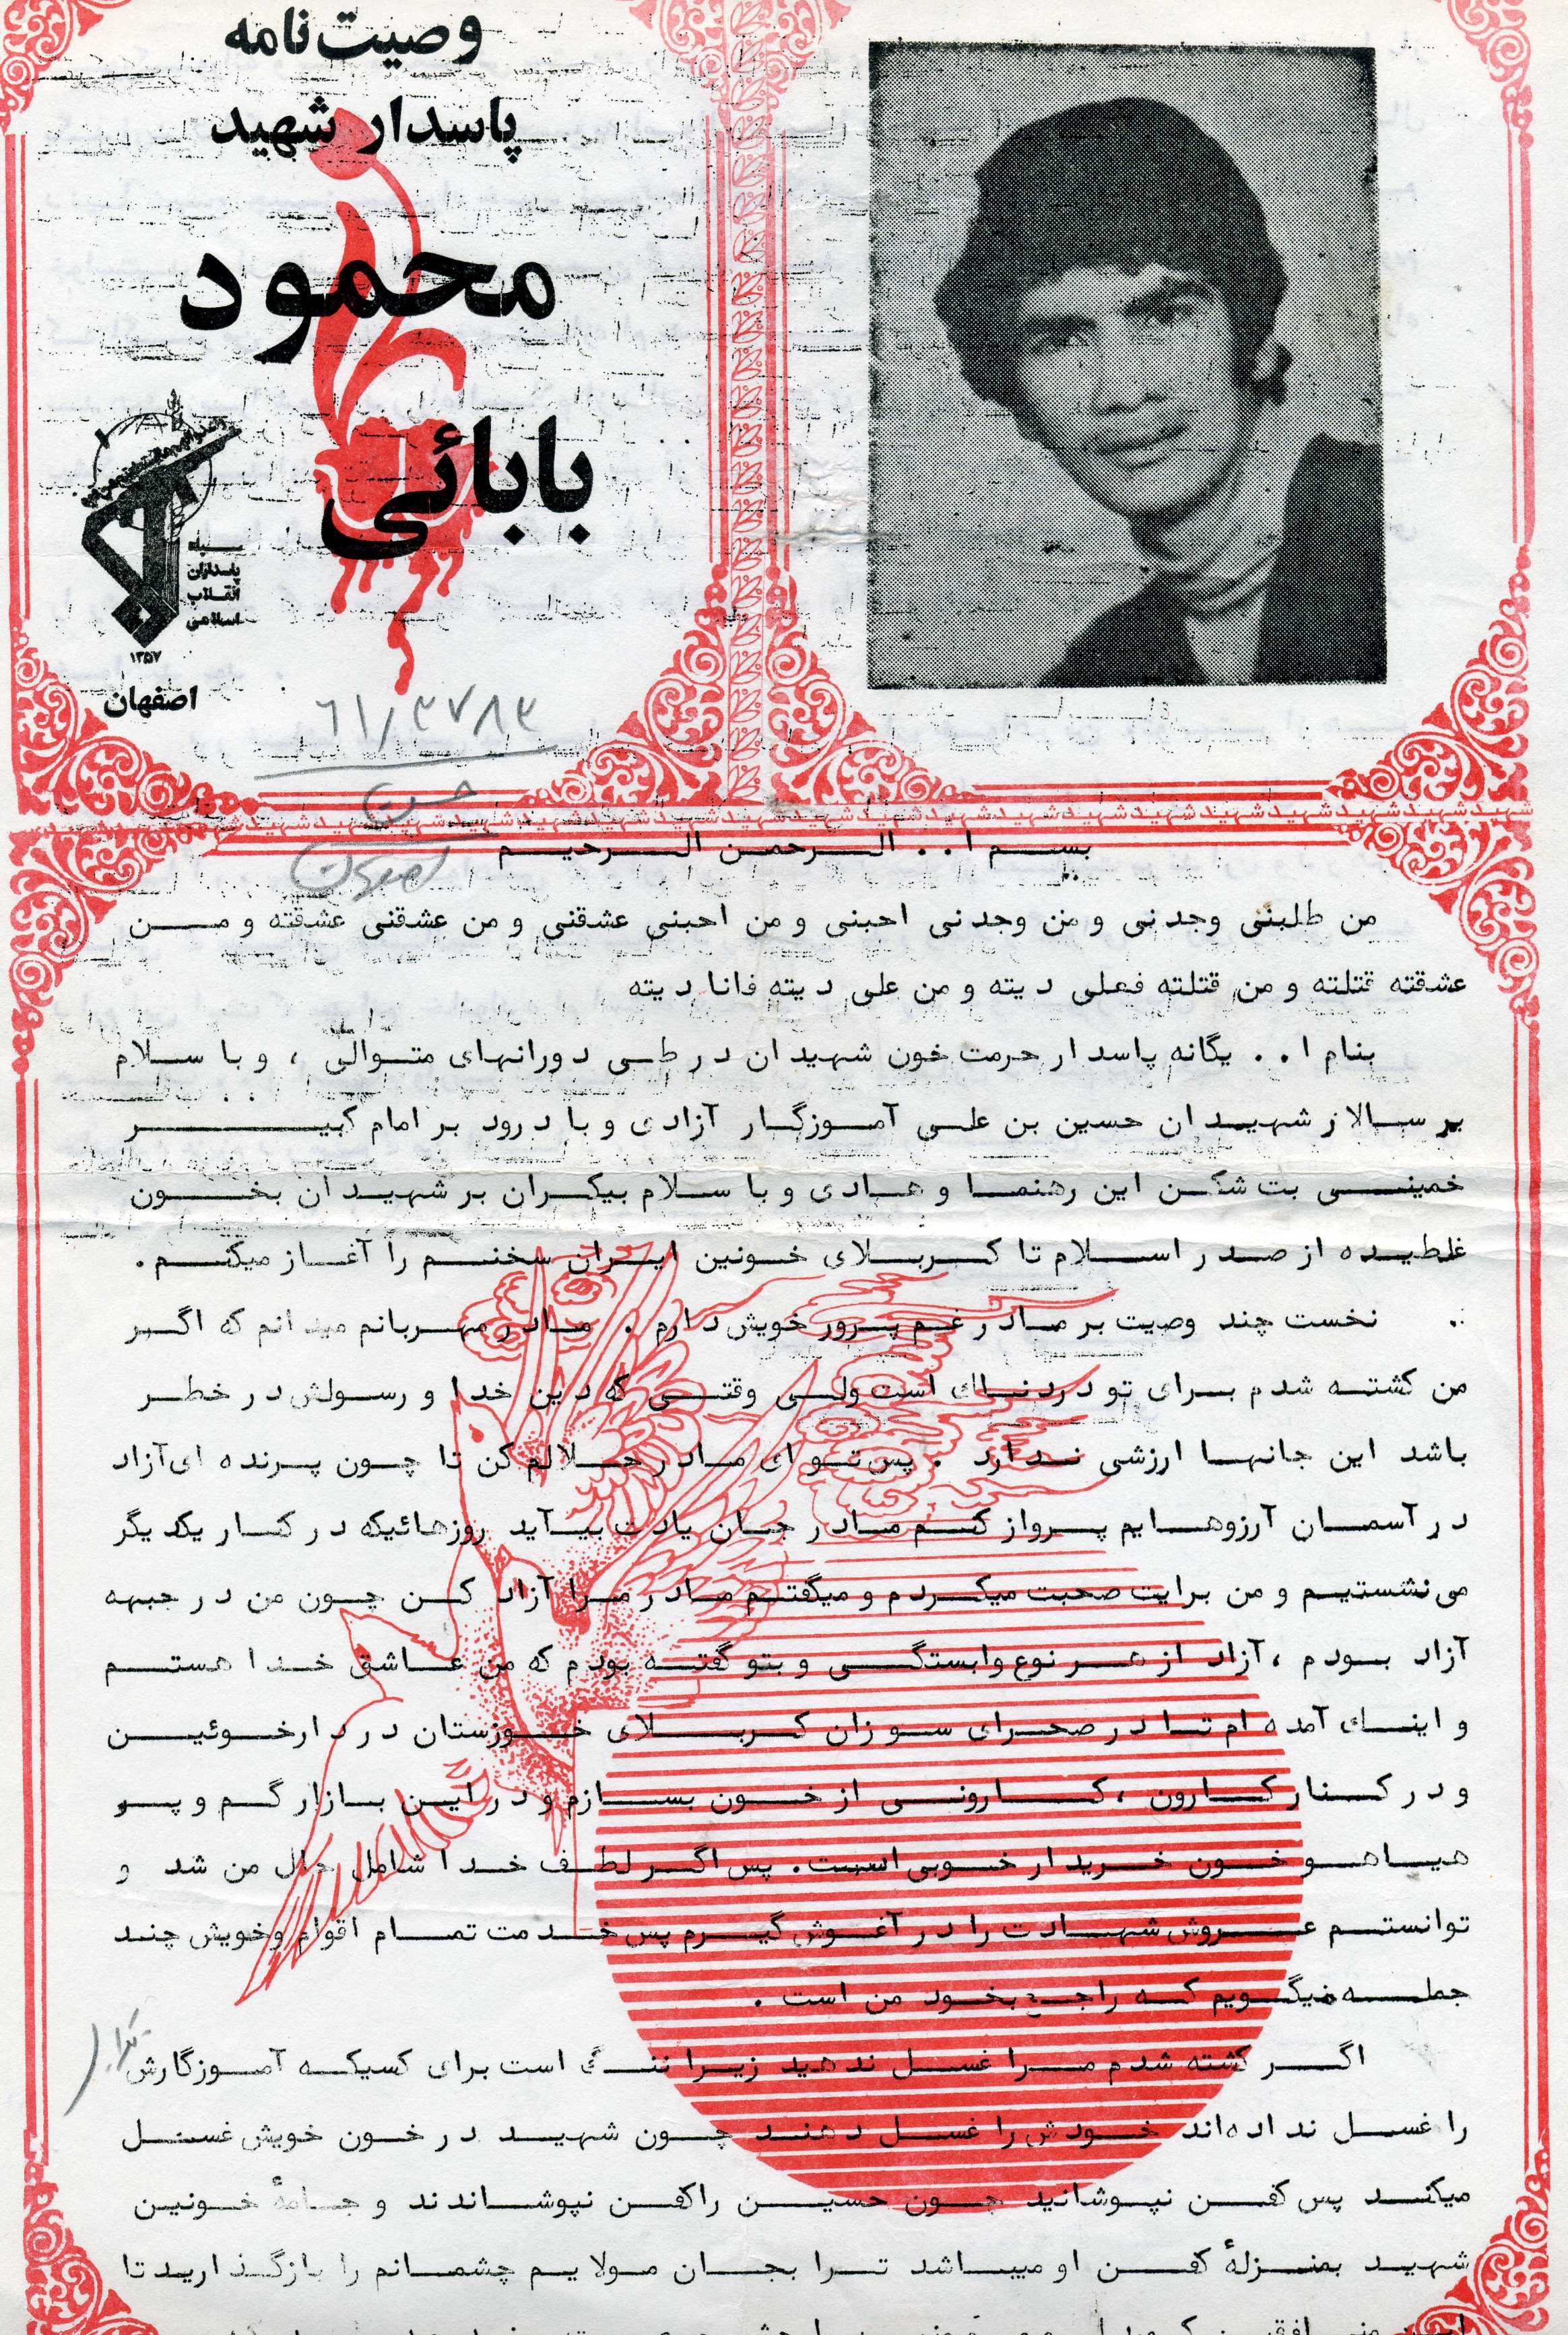 وصیت‌نامه
پاسدار شهید
محمود
بابائی
سپاه
پاسداران
انقلاب
اسلامی
۱۳۵۷
اصفهان
۶۱/۳۷۸۳
بسم ا.. الرحمن الرحیم
من طلبنی وجدنی و من وجدنی احبنی و من احبنی عشقنی و من عشقنی عشقته و من
عشقته قتلته و من قتلته فعلی دیته و من علی دیته فانا دیته
بنام ا.. یگانه پاسدار حرمت خون شهیدان در طی دورانهای متوالی ، و با سلام
بر سالار شهیدان حسین بن علی آموزگار آزادی و با درود بر امام کبیر
خمینی بت شکن این رهنما و هادی و با سلام بیکران بر شهیدان بخون
غلطیده از صدر اسلام تا کربلای خونین ایران سخنم را آغاز میکنم .
نخست چند وصیت بر مادر غم پرور خویش دارم . مادر مهربانم میدانم که اگر
من کشته شدم برای تو دردناك است ولی وقتی که دین خدا و رسولش در خطر
باشد این جانها ارزشی ندارد . پس تو ای مادر حلالم کن تا چون پرنده ای آزاد
در آسمان آرزوهایم پرواز کنم مادر جان یادت بیآید روزهائیکه در کنار یکدیگر
می نشستیم و من برایت صحبت میکردم و میگفتم مادر مرا آزاد کن چون من در جبهه
آزاد بودم ، آزاد از هر نوع وابستگی و بتو گفته بودم که من عاشق خدا هستم
و اینك آمده ام تا در صحرای سوزان کربلای خوزستان در دارخوئین
و در کنار کارون ، کارونی از خون بسازم و در این بازار گم و پر
هیاهو خون خریدار خوبی است . پس اگر لطف خدا شامل حال من شد و
توانستم عروش شهادت را در آغوش گیرم پس خدمت تمام اقوام وخویش چند
جمله میگویم که راجع بخود من است .
اگر کشته شدم مرا غسل ندهید زیرا ننگ است برای کسیکه آموزگارش
را غسل نداده‌اند خودش را غسل دهند چون شهید در خون خویش غسل
میکند پس کفن نپوشانید چون حسین را کفن نپوشاندند و جامهٔ خونین
شهید بمنزلهٔ کفن او میباشد ترا بجان مولایم چشمانم را بازگذارید تا